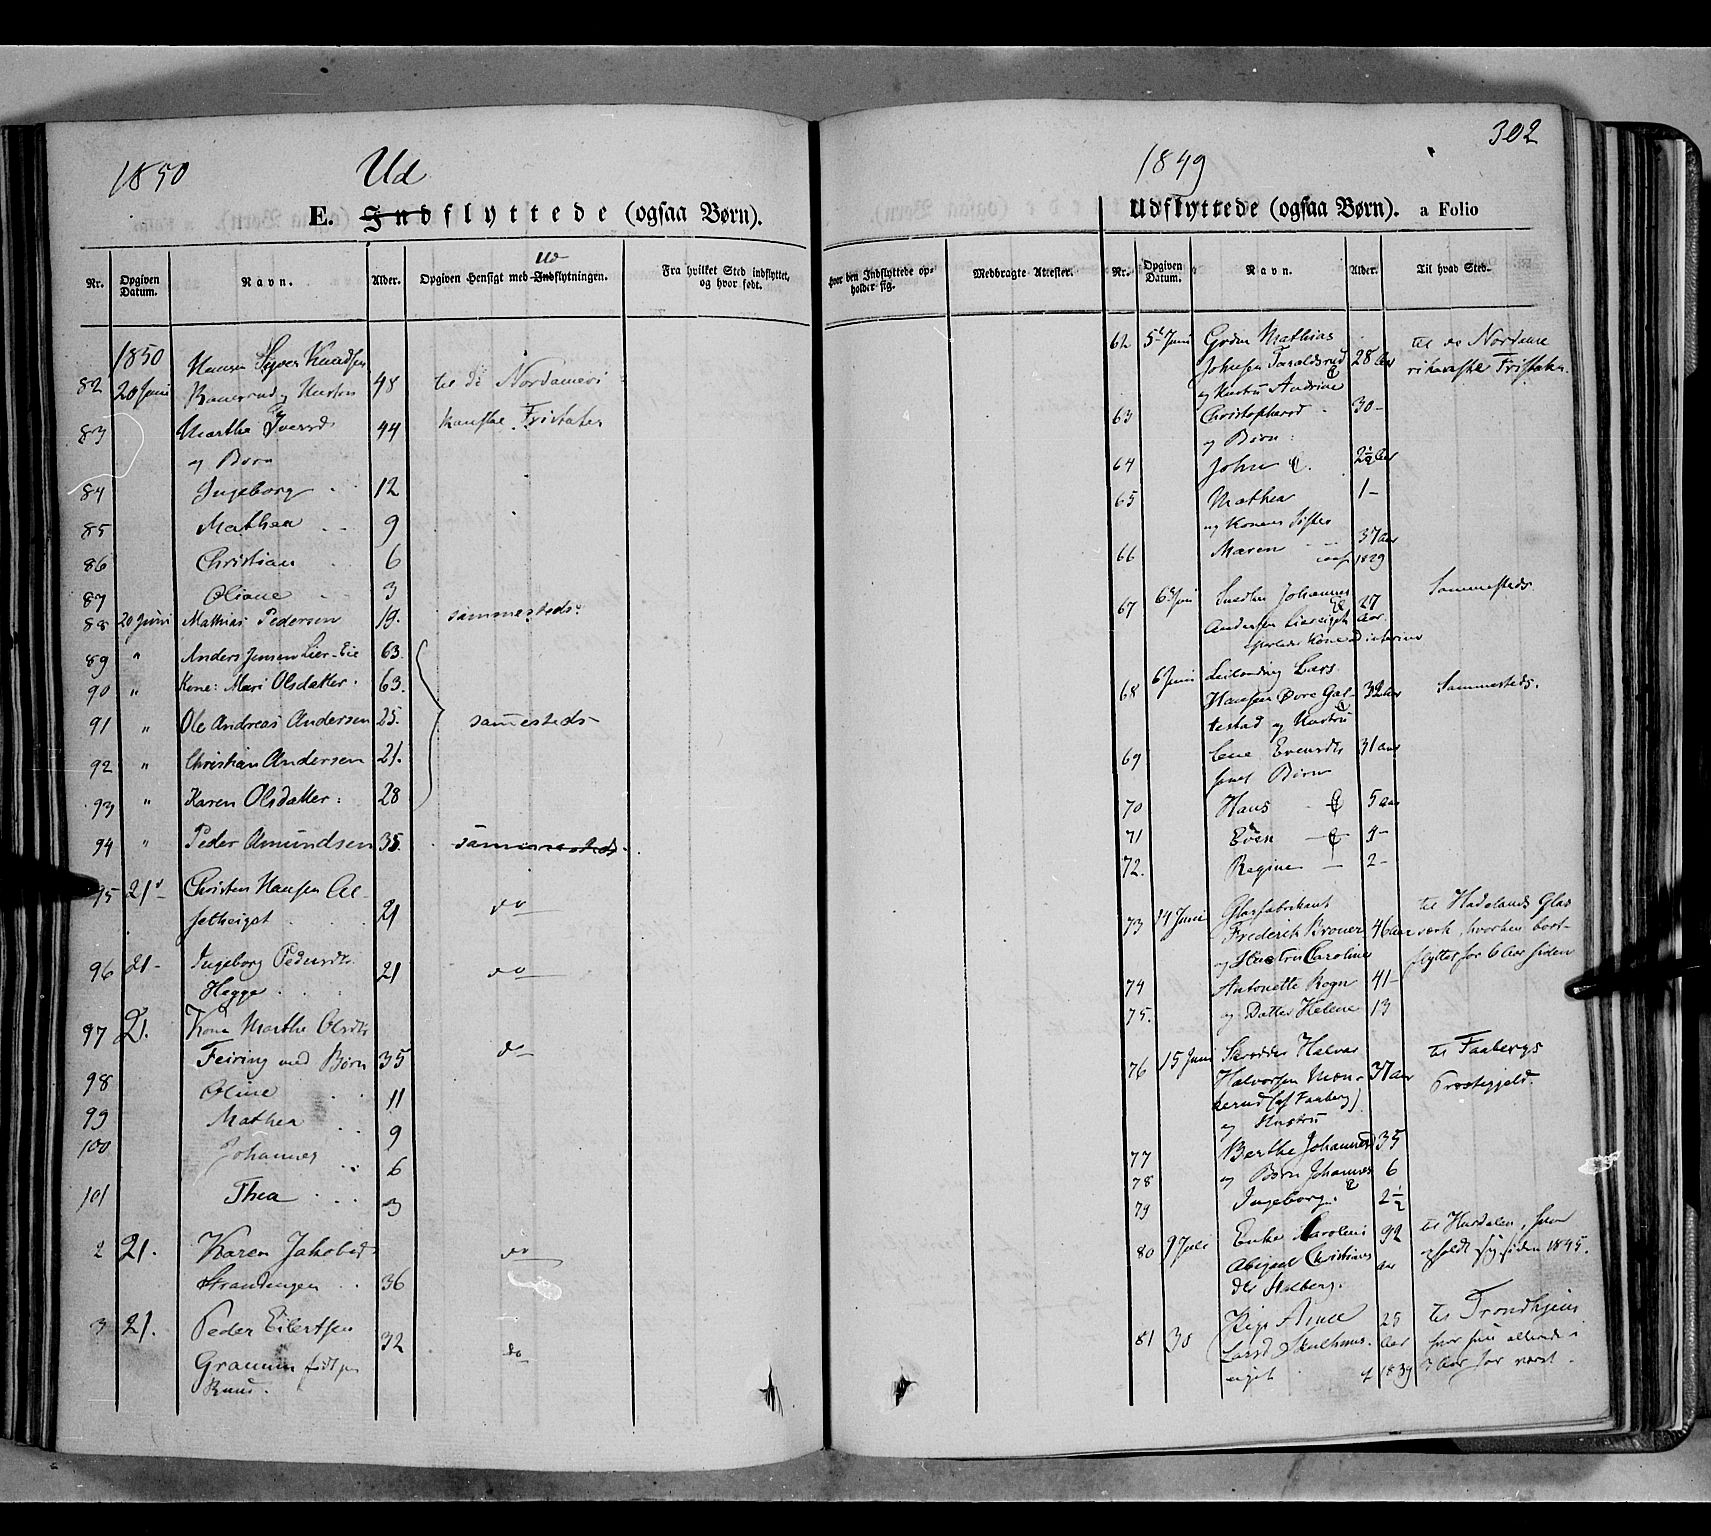 1850 Ud
E. Indflyttede (ogsaa Børn).
Ud
Nr. Opgiven Datum. Navn. Alder. Opgiven Hensigt med Indflytningen. Fra hvilket Sted indflyttet, og hvor født.
1850
82 20 Juni Syver Knudsen
48 til de Nordameri
83 Marthe Iversd 44 kanske Fristater
og Børn
84 Ingeborg 12
85 Mathea 9
86 Christian 6
87 Oliane 3
88 20 Juni Mathias Pedersen 19. sammesteds
89 " Anders Jensen Lier-Eie 63.
90 " Kone: Mari Olsdatter. 63.
91 " Ole Andreas Andersen 25. samesteds
92 " Christian Andersen 21.
93 " Karen Olsdatter: 28
94 " Peder Amundsen 35. sammesteds
95 21 Christen Hansen
21 do
96 21- Ingeborg Pedersdtr
Hegge 21 do
97 21. Kone Marthe Olsdtr
Feiring med Børn 35 do
98 Oline 11
99 Mathea 9
100 Johannes 6
101 Thea 3
2 21. Karen Jakobsd do
Strandengen 36
3 21. Peder Eilertsen 32
Gramm do
Ruud.
302
1849
Udflyttede (ogsaa Børn). a Folio
Hvor den Indflyttede opholder sig. Medbragte Attester. Nr. Opgiven Datum. Navn. Alder. Til hvad Sted.
62 5t Juni Mathias til de Nordame
Johnsen 28 Aar rikanske Fristater.
og Hustru Andrine
63 Christophersd 30-
og Børn:
64 John 2½ Aar
65 Mathea 1-
og Konens Søster
66 Maren 37 aar
1829
67 6 Juni Johannes 27 Sammesteds
Andersen Aar
68 6 Juni Leilending Lars
Hansen Øvre Gal- 32 aar Sammesteds.
testad og Hustru
69 Lene Evensdtr 31 aar
samt Børn
70 Hans 5 aar
71 Even 4-
72. Regine 2-
73 14 Juni Glasfabrikant til Hadelands Glas
Frederik Broner 46 aar værk, hvorhen bort-
og Hustru Caroline flyttet for 6 Aar siden
74 Antonette Rogn 41-
75. og Datter Helene 13
76 15 Juni Skrædder Halvor til Faabergs
Halvorsen 37 aar Præstegjeld.
(af Faaberg)
og Hustru
77 Berthe Johannesd 35
78 og Børn Johannes 6
79 Ingeborg. 2½
80 9 Juli Enke Karoline 92 til Hurdalen, hvor
Abigael Christians aar opholdt sig siden 1845.
dtr Stalberg.
81 30 Pige Anne 25 til Trondhjem
Larsd Aar hvor hun allerede i
1839 Aar har været.